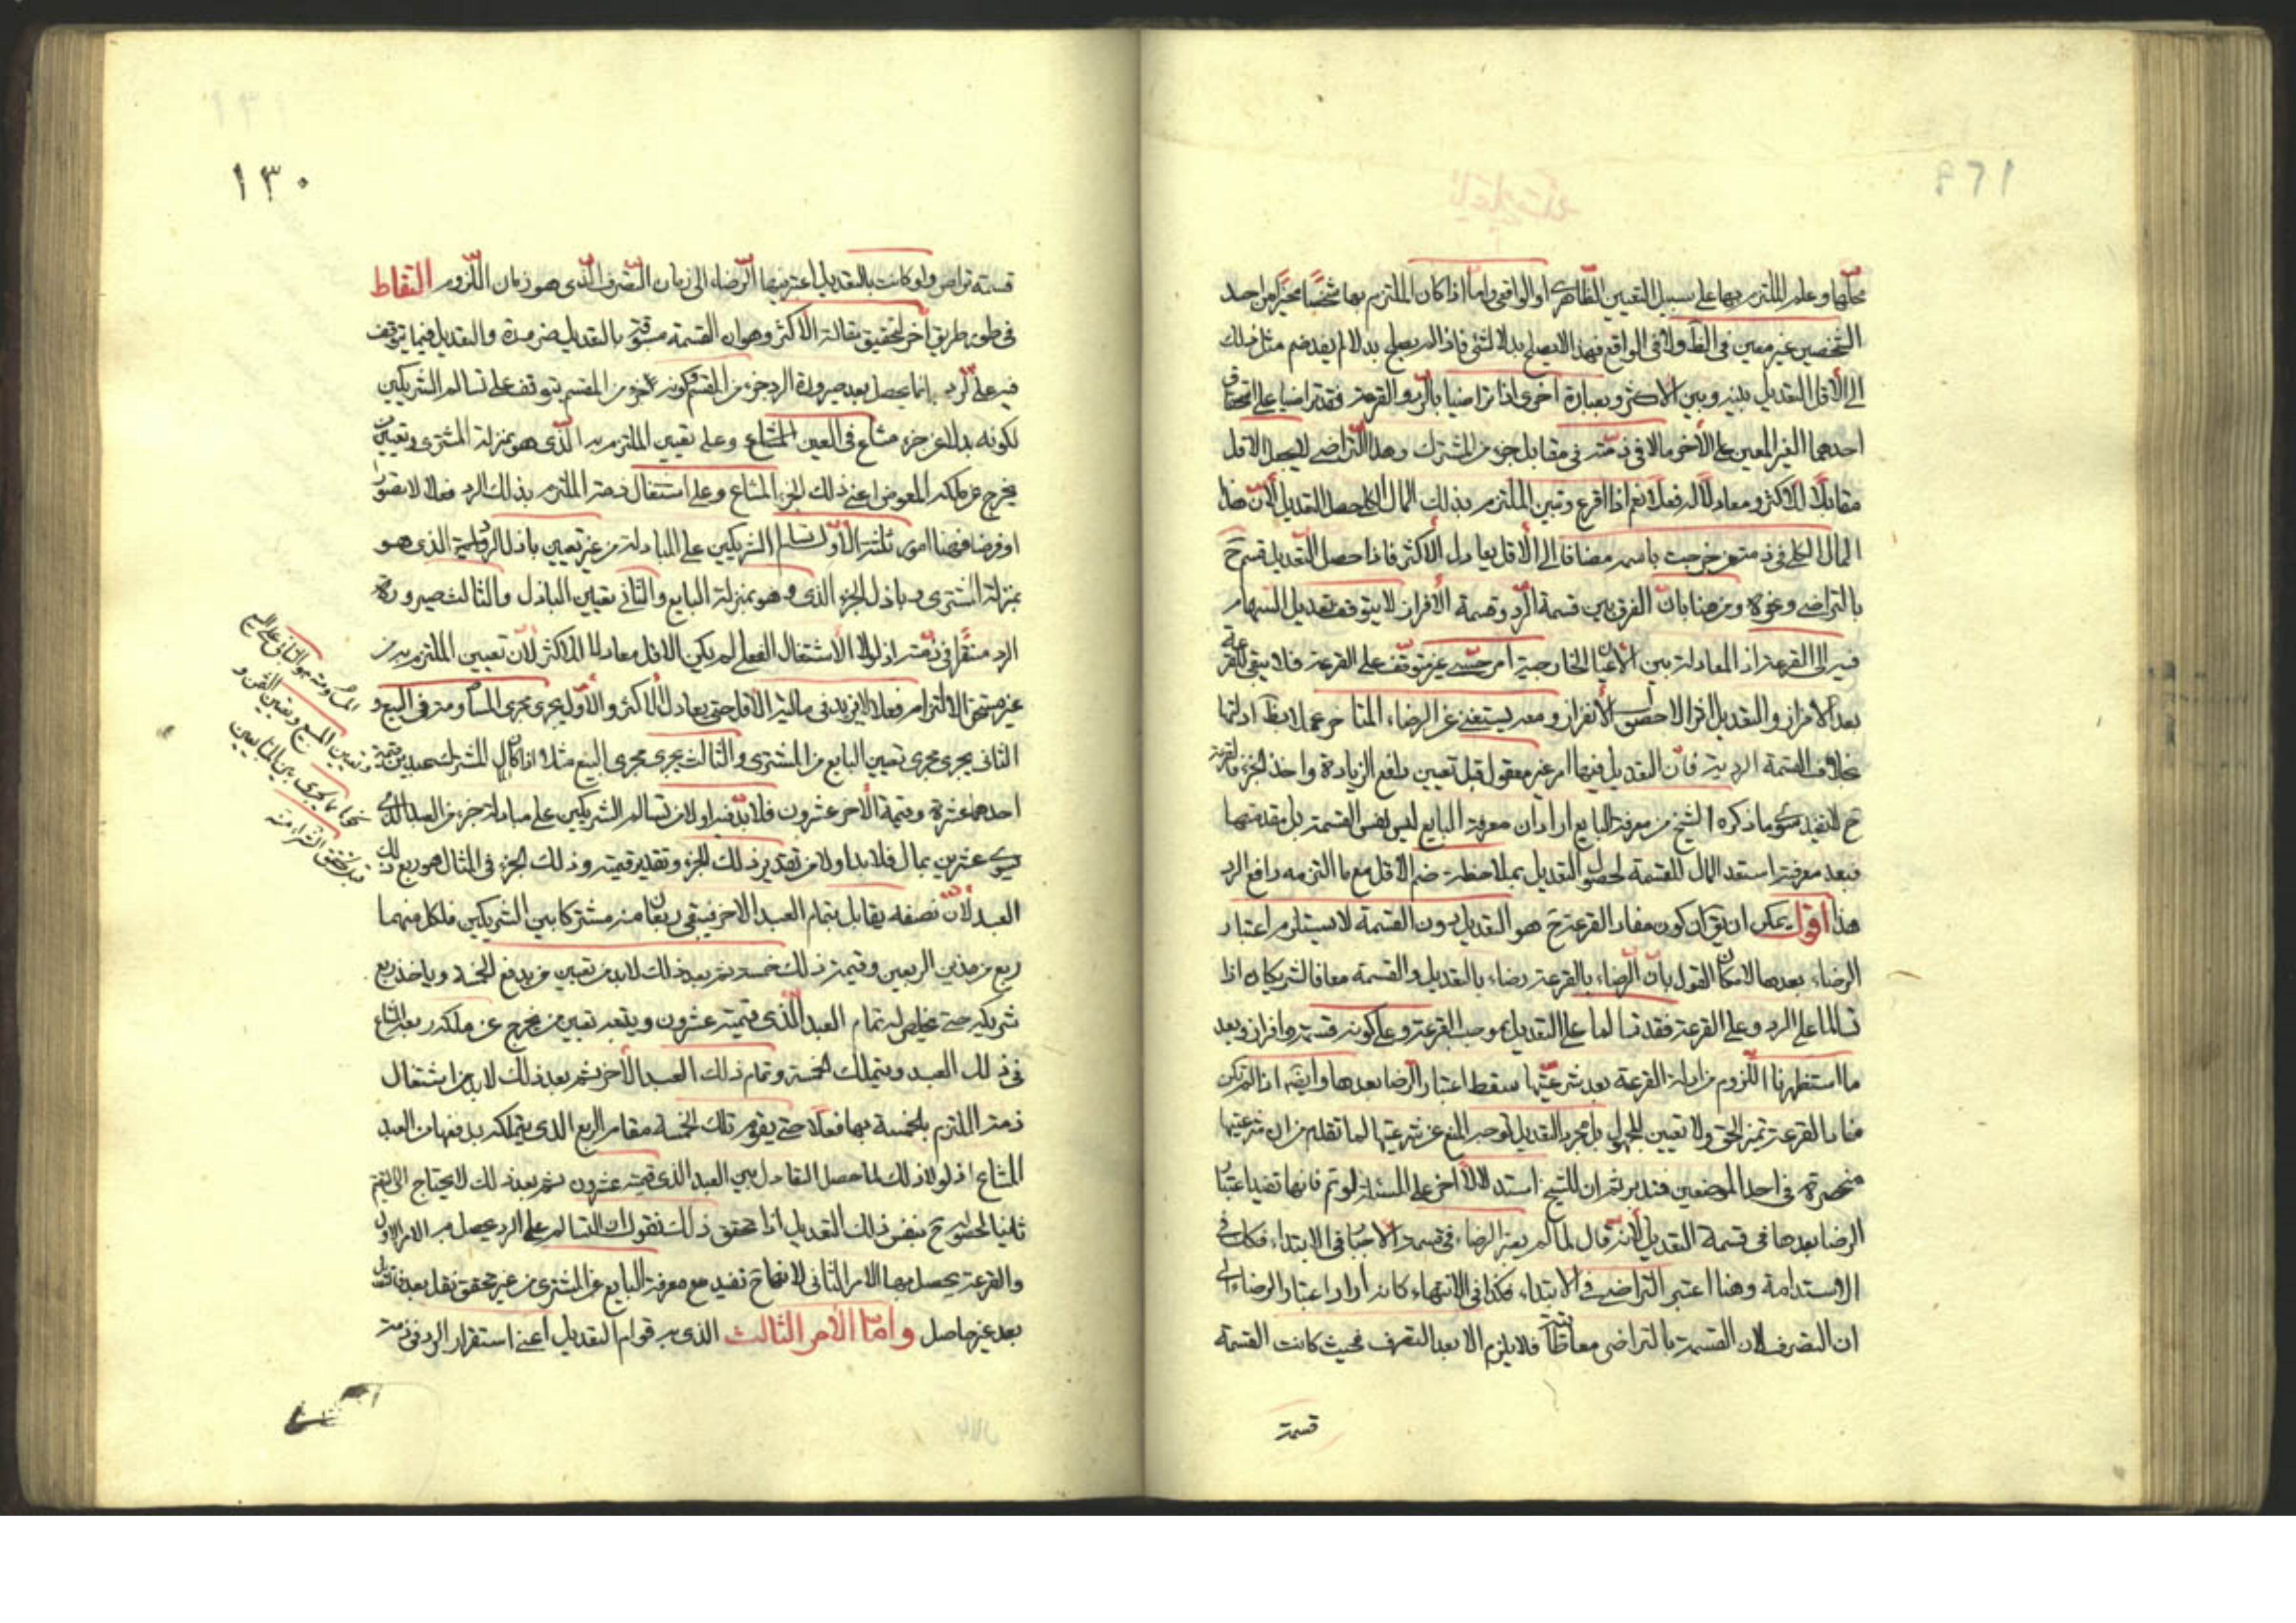 محلها وعلم الملتزم بها على سبيل التعيين الظاهرى او الواقعى واما اذا كان الملتزم بها شخصا مخيرا من احد
الشخصين غير معين فى الظ ولا فى الواقع فهذا لا يصلح بدلا لشئ فاذا لم يصلح بدلا لم يفد ضم مثل ذلك
الى الأقل التعديل بينه وبين الاكثر وبعبارة اخرى اذا تراضيا بالرد والقرعة فقد تراضيا على استحقاق
احدهما الغير المعين على الآخر مالا فى ذمته فى مقابل جزء من المشترك وهذا التراضى لا يجعل الاقل
مقابلا للاكثر ومعادلا له فعلا نعم اذا اقرع وتبين الملتزم بذلك المال الكلى حصل التعديل لأن هذا
المال الكلى فى ذمة من خرجت باسمه مضافا الى الأقل يعادل الأكثر فاذا حصل التعديل قسم ح
بالتراضى ونحوه ومن هنا بان الفرق بين قسمة الرد وقسمة الأفراز لا يتوقف تعديل السهام
فيه الى القرعة اذ المعادلة بين الأعيان الخارجية امر حسى غير متوقف على القرعة فلا يبقى للقرعة
بعد الافراز والتعديل اثر الا حصول الأنفراز ومعه يستغنى عن الرضاء المتاخر عملا بظ ادلتها
بخلاف القسمة الردية فان التعديل فيها امر غير معقول قبل تعيين دافع الزيادة واخذ الجزء فالقرعة
ح لا تفيد سوى ما ذكره الشيخ من معرفة البايع اراد ان معرفة البايع ليس نفس القسمة بل مقدمتها
فبعد معرفته استعد المال للقسمة لحصول التعديل بملاحظة ضم الاقل مع ما التزمه دافع الرد
هذا اقول يمكن ان يق ان كون مفاد القرعة ح هو التعديل دون القسمة لا يستلزم اعتبار
الرضاء بعدها لامكان القول بأن الرضاء بالقرعة رضاء بالتعديل والقسمة معا فالشريكان اذا
تسالما على الرد وعلى القرعة فقد تسالما على التعديل بموجب القرعة وعلى كونه قسمة وافراز وبعد
ما استظهرنا اللزوم من ادلة القرعة بعد شرعيتها سقط اعتبار الرضا بعدها وايضا اذا لم تكن
مفاد القرعة تميز الحق ولا تعيين المجهول بل مجرد التعديل توجه المنع عن شرعيتها لما تقدم من ان شرعيتها
منحصرة فى احد الموضعين فتدبر ثم ان للشيخ استدلالا آخر على المسئلة لو تم فانها تفيد اعتبار
الرضا بعدها فى قسمة التعديل لأنه قال لما لم يعتبر الرضاء فى قسمة الاجبار فى الابتداء فكذا فى
الاستدامة وهنا اعتبر التراضى فى الابتداء فكذا فى الانتهاء كانه اراد اعتبار الرضاء الى
ان التصرف لان القسمة بالتراضى معاطاة فلا يلزم الا بعد التصرف فحيث كانت القسمة
قسمة
١٣٠
قسمة تراض ولو كانت بالتعديل اعتبر فيها الرضاء الى زمان التصرف الذى هو زمان اللزوم التقاط
فى طور طريق آخر لتحقيق مقالة الأكثر وهو ان القسمة مسبوقة بالتعديل ضرورة والتعديل فيما يتوقف
فيه على الرد انما يحصل بعد صيرورة الرد جزء من المقسم وكونه جزء من المقسم يتوقف على تسالم الشريكين
لكونه بدلا عن جزء مشاع فى العين المشاع وعلى تعيين الملتزم به الذى هو بمنزلة المشترى وتعيين من
يخرج عن ملكه المعوض اعنى ذلك الجزء المشاع وعلى اشتغال ذمة الملتزم بذلك الرد فعلا لا تصورا
او فرضا فهنا امور ثلثة الأول تسالم الشريكين على المبادلة من غير تعيين باذل الرد الذى هو
بمنزلة المشترى وباذل الجزء الذى هو بمنزلة البايع والثانى تعيين الباذل والثالث صيرورة
الرد متقررا فى ذمته اذ لولا الاشتغال الفعلى لم يكن الاقل معادلا للاكثر لأن تعيين الملتزم به من
غير تحقق الالتزام فعلا لا يزيد فى مالية الأقل حتى يعادل الأكثر والأول يجرى مجرى المساومة فى البيع و
الثانى يجرى مجرى تعيين البايع من المشترى والثالث يجرى مجرى البيع مثلا اذا كان المشترك عبدين قيمة
احدهما عشرة وقيمة الآخر عشرون فلا بد فيه اولا من تسالم الشريكين على مبادلة جزء من العبد الذى
يسوى عشرين بمال فلا بد اولا من تقدير ذلك الجزء وتقدير قيمته وذلك الجزء فى المثال هو ربع ذلك
العبد لأن نصفه يقابل بتمام العبد الاخر فيبقى ربعان منه مشتركا بين الشريكين فلكل منهما
ربع من هذين الربعين وقيمة ذلك خمسة ثم بعد ذلك لا بد من تعيين من يدفع الخمسة وياخذ ربع
شريكه حتى يخلص له تمام العبد الذى قيمته عشرون ويتبعه تعيين من يخرج عن ملكه ربعه المشاع
فى ذلك العبد ويتملك الخمسة وتمام ذلك العبد الأخر ثم بعد ذلك لا بد من اشتغال
ذمة الملتزم بالخمسة بها فعلا حتى يقوم تلك الخمسة مقام الربع الذى يتملكه بدفعها من العبد
المشاع اذ لولا ذلك لما حصل التعادل بين العبد الذى قيمته عشرون ثم بعد ذلك لا يحتاج الى تقويم
ثانيا لحصوله ح بنفس ذلك التعديل اذا تحقق ذلك فنقول ان التسالم على الرد يحصل به الامر الاول
والقرعة يحصل بها الامر الثانى لانها ح تفيد مع معرفة البايع عن المشترى من غير تحقق نقل بعد فالتعديل
بعد غير حاصل واما الأمر الثالث الذى به قوام التعديل اعنى استقرار الرد فى ذمة